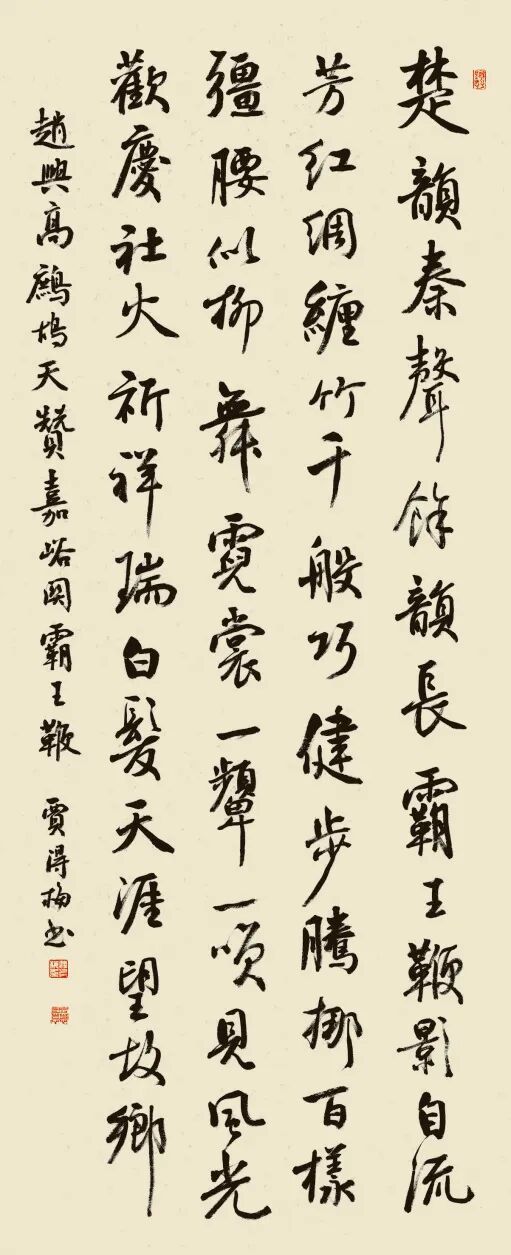 楚韻秦聲餘韻長霸王鞭影自流
芳紅綢纏竹千般巧健步騰挪百樣
彊腰似柳舞霓裳一顰一唄見風光
歡慶社火祈祥瑞白髮天涯望故鄉
趙興高鷓鴣天贊嘉峪關霸王鞭 賈得梅书